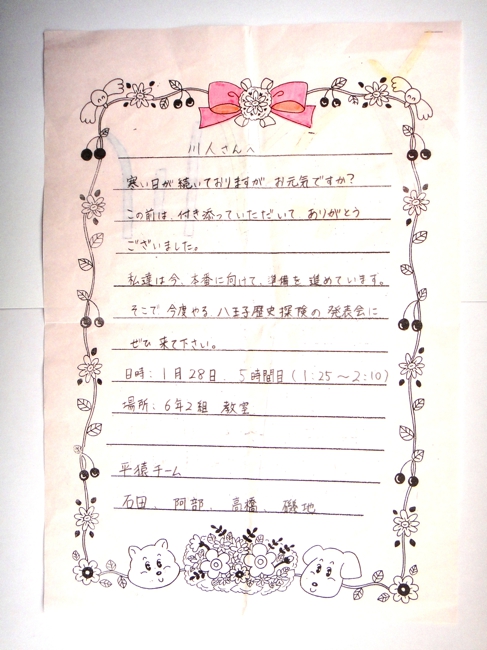 川人さんへ
寒い日が続いておりますが お元気ですか?
この前は、付き添っていただいて、ありがとう
ございました。
私達は今、本番に向けて、準備を進めています。
そこで 今度やる 八王子歴史探検の発表会に
ぜひ 来て下さい。
日時:1月28日、5時間目(1:25～2:10)
場所:6年2組 教室
平猿チーム
石田、阿部、高橋、磯地